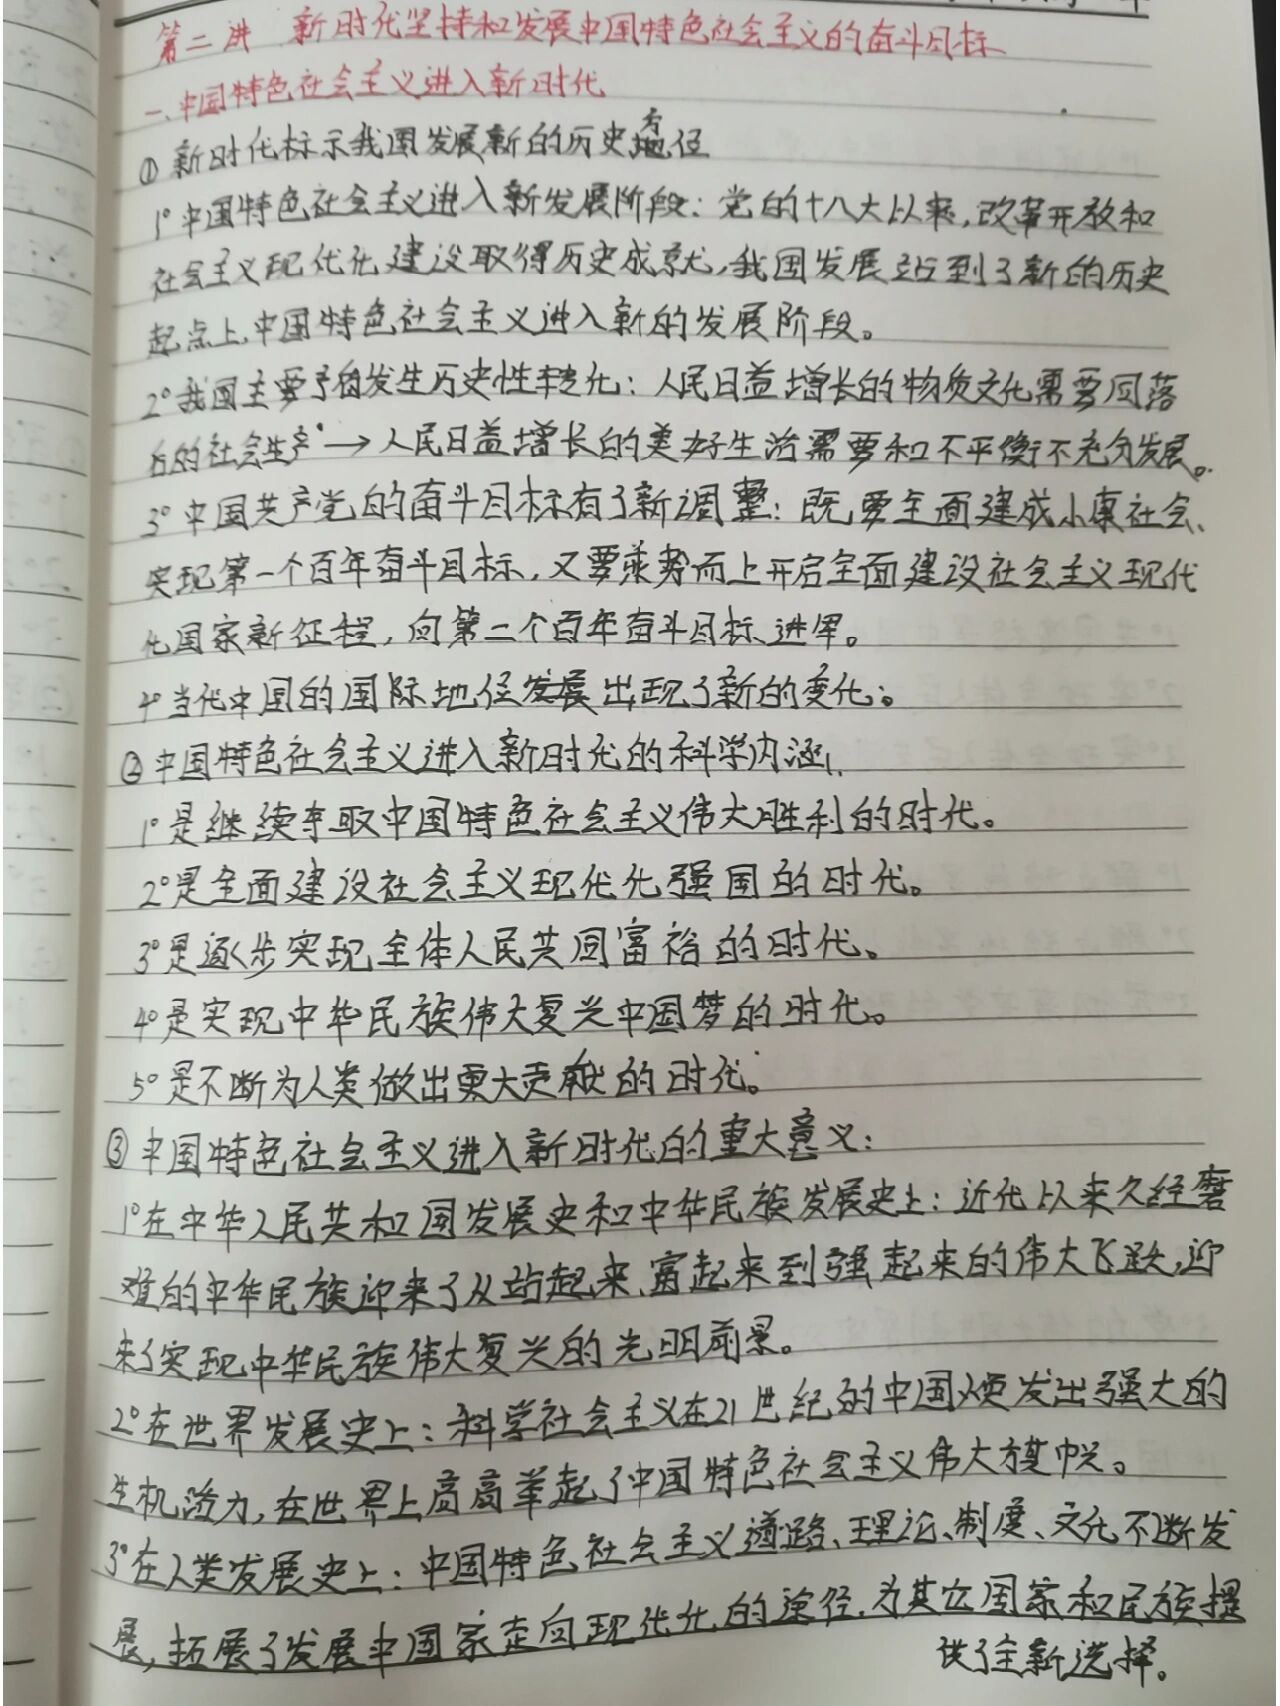 第二讲 新时代坚持和发展中国特色社会主义的奋斗目标
一、中国特色社会主义进入新时代
①新时代标示我国发展新的历史方位
1°中国特色社会主义进入新发展阶段：党的十八大以来，改革开放和
社会主义现代化建设取得历史成就，我国发展站到了新的历史
起点上，中国特色社会主义进入新的发展阶段。
2°我国主要矛盾发生历史性转化：人民日益增长的物质文化需要同落
后的社会生产→人民日益增长的美好生活需要和不平衡不充分发展。
3°中国共产党的奋斗目标有了新调整：既要全面建成小康社会、
实现第一个百年奋斗目标，又要乘势而上开启全面建设社会主义现代
化国家新征程，向第二个百年奋斗目标进军。
4°当代中国的国际地位出现了新的变化。
②中国特色社会主义进入新时代的科学内涵
1°是继续夺取中国特色社会主义伟大胜利的时代。
2°是全面建设社会主义现代化强国的时代。
3°是逐步实现全体人民共同富裕的时代。
4°是实现中华民族伟大复兴中国梦的时代。
5°是不断为人类做出更大贡献的时代。
③中国特色社会主义进入新时代的重大意义：
1°在中华人民共和国发展史和中华民族发展史上：近代以来久经磨
难的中华民族迎来了从站起来、富起来到强起来的伟大飞跃，迎
来了实现中华民族伟大复兴的光明前景。
2°在世界发展史上：科学社会主义在21世纪的中国焕发出强大的
生机活力，在世界上高高举起了中国特色社会主义伟大旗帜。
3°在人类发展史上：中国特色社会主义道路、理论、制度、文化不断发
展，拓展了发展中国家走向现代化的途径，为其它国家和民族提
供了全新选择。